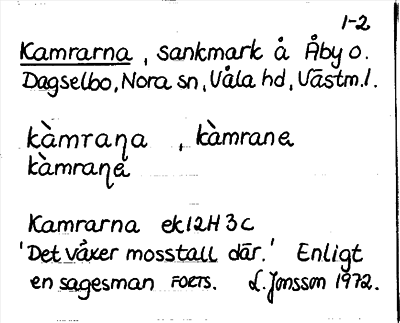 1-2
Kamrarna, sankmark å Åby o.
Dagselbo, Nora sn, Våla hd, Västm.l.
kàmraɳa, kàmrane
kàmraɳe
Kamrarna ek 12H 3c
'Det växer mosstall där.' Enligt
en sagesman FOETS. L. Jonsson 1972.